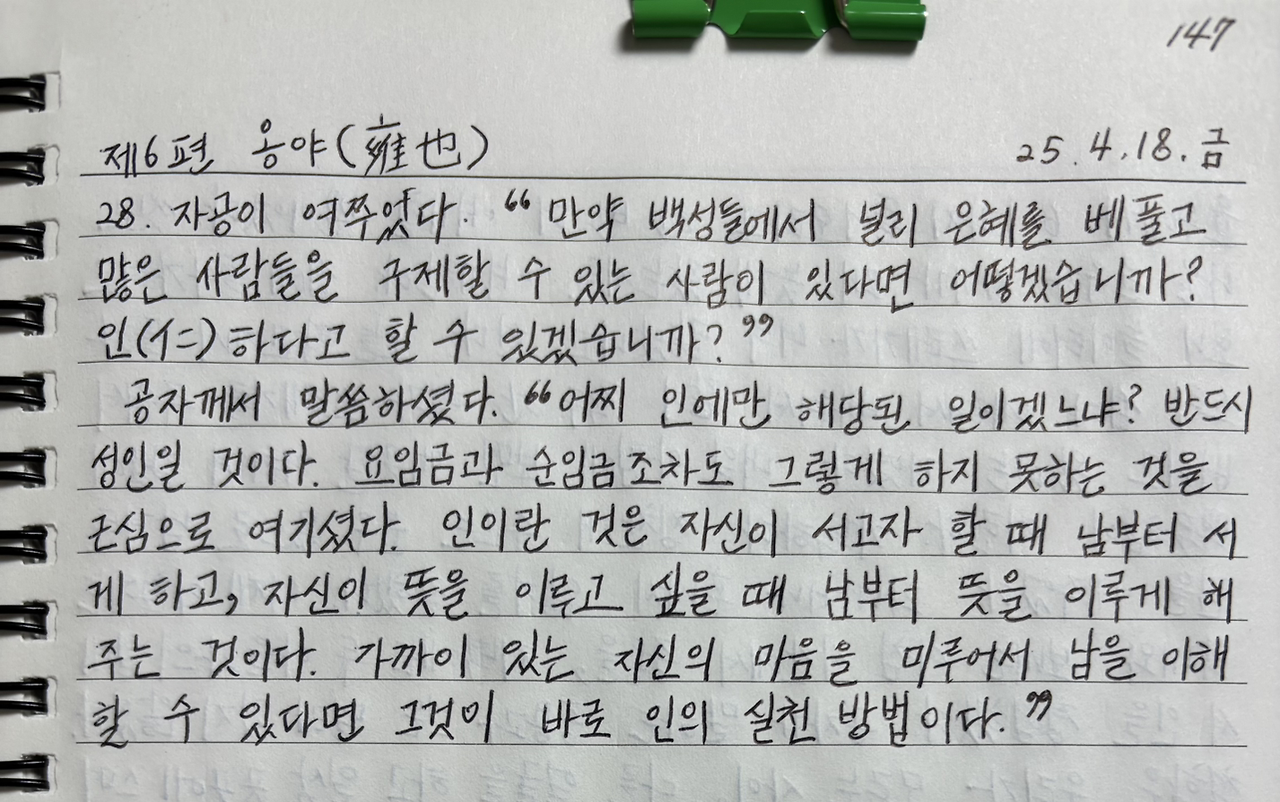 147
제6편 옹야(雍也) 25.4.18.금
28. 자공이 여쭈었다. “만약 백성들에서 널리 은혜를 베풀고
많은 사람들을 구제할 수 있는 사람이 있다면 어떻겠습니까?
인(仁)하다고 할 수 있겠습니까?”
공자께서 말씀하셨다. “어찌 인에만 해당된 일이겠느냐? 반드시
성인일 것이다. 요임금과 순임금조차도 그렇게 하지 못하는 것을
근심으로 여기셨다. 인이란 것은 자신이 서고자 할 때 남부터 서
게 하고, 자신이 뜻을 이루고 싶을 때 남부터 뜻을 이루게 해
주는 것이다. 가까이 있는 자신의 마음을 미루어서 남을 이해
할 수 있다면 그것이 바로 인의 실천 방법이다.”